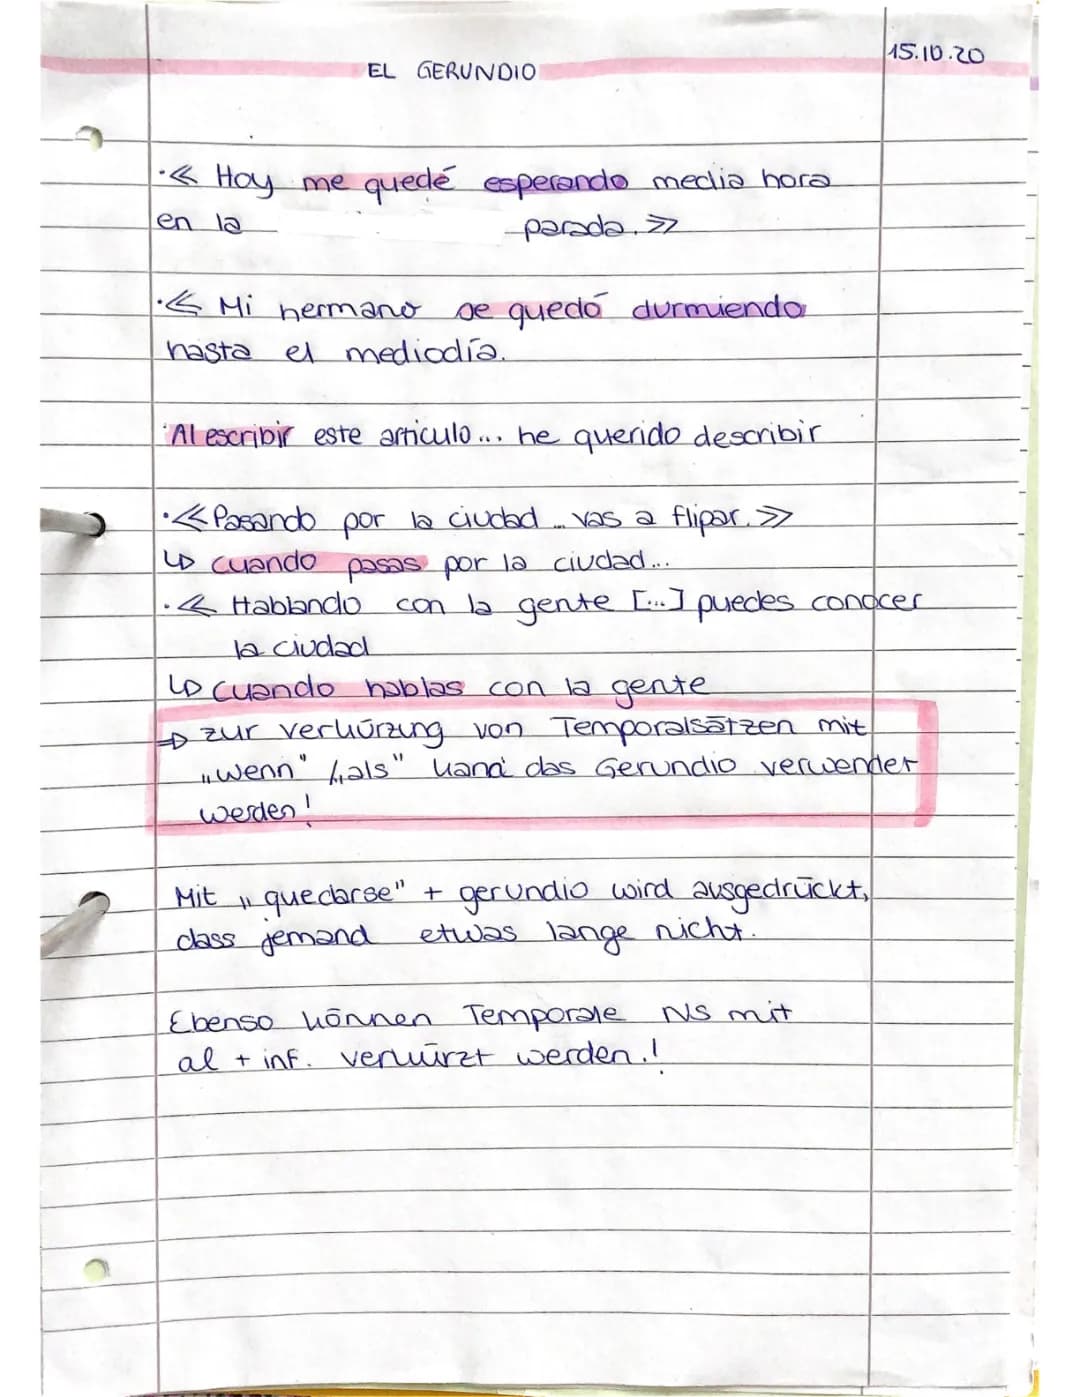 15.10.20
EL GERUNDIO
·≪ Hoy me quedé esperando media hora
en la parada. ≫
·≪ Mi hermano se quedó durmiendo
hasta el mediodía.
·Al escribir este articulo... he querido describir
·≪ Pasando por la ciudad ... vas a flipar. ≫
↳ cuando pasas por la ciudad...
·≪ Hablando con la gente [...] puedes conocer
la ciudad
↳ cuando hablas con la gente
⇒ zur verkürzung von Temporalsätzen mit
„wenn" /„als" kann das Gerundio verwendet
werden!
Mit „quedarse" + gerundio wird ausgedrückt,
dass jemand etwas lange nicht.
Ebenso können Temporale NS mit
al + inf. verkürzt werden.!